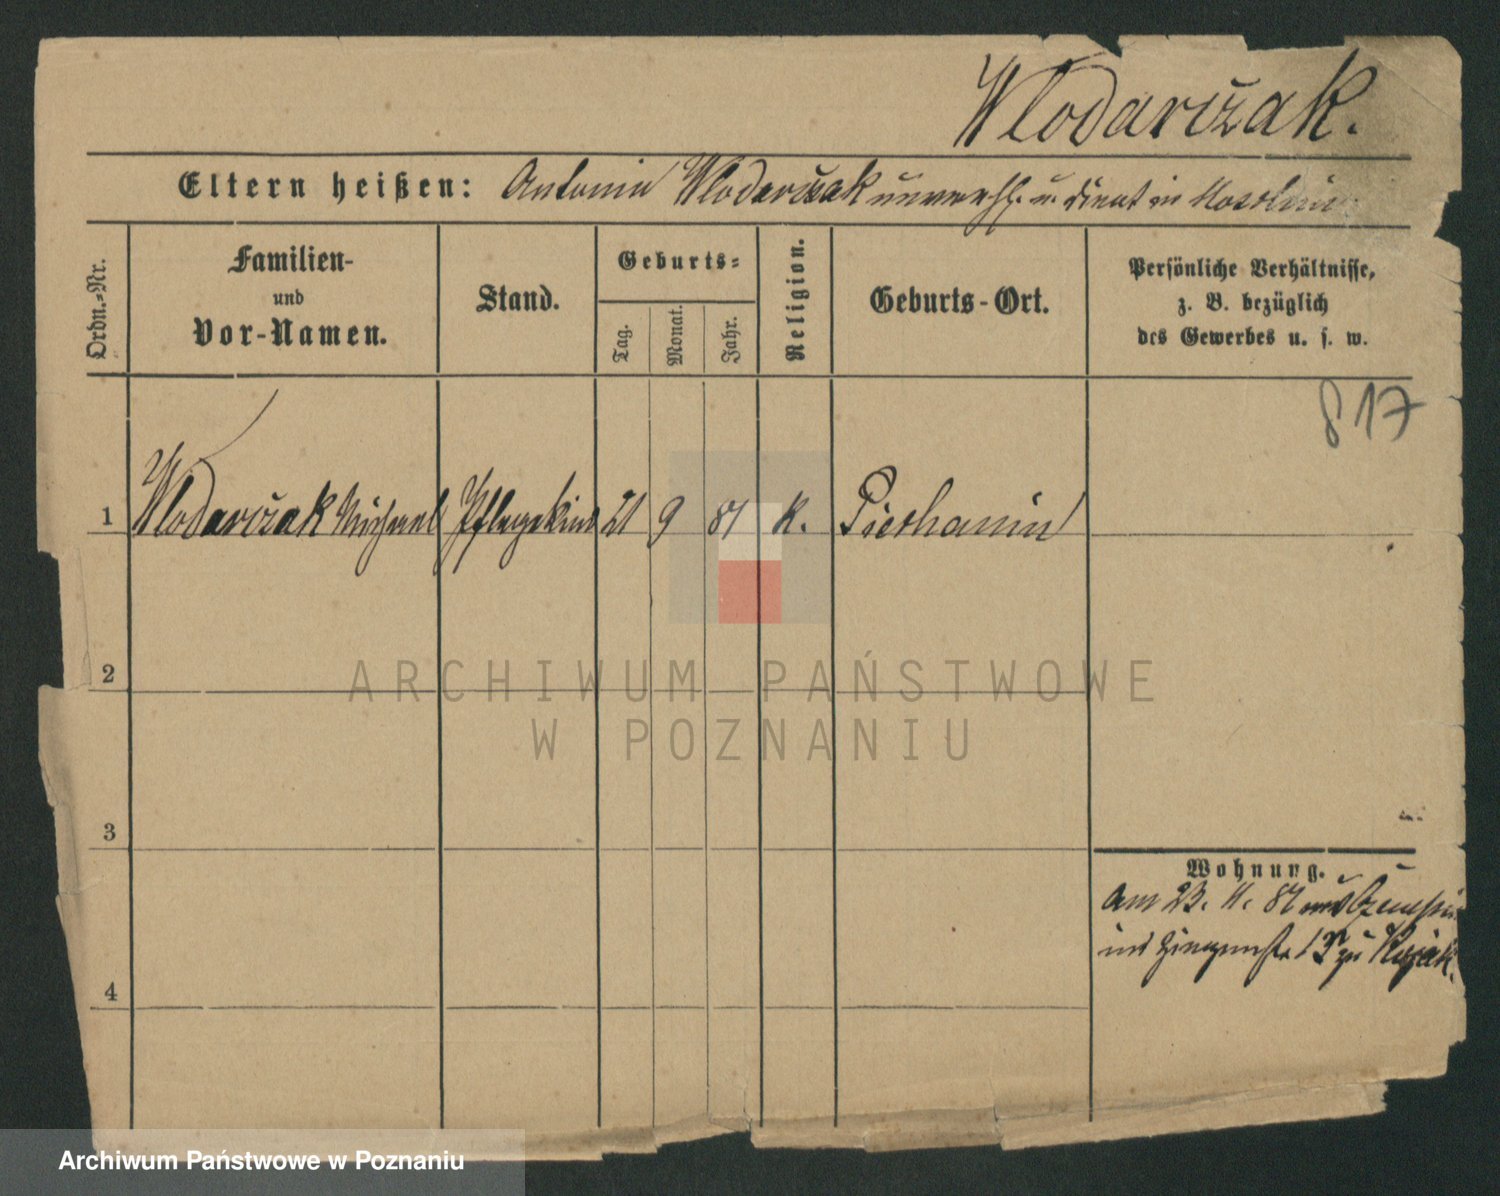 Wlodarczak.
Eltern heißen: Antonia Wlodarczak unverh. u. dient in
Ordn.-Nr.
Familien-
und
Vor-Namen.
Stand.
Geburts-
Tag.
Monat.
Jahr.
Religion.
Geburts-Ort.
Persönliche Verhältnisse,
z. B. bezüglich
des Gewerbes u. s. w.
817
1 Wlodarczak Michael Pflegekind 21 9 81 k. Piechanin
2
3
4
Wohnung.
Am 23. 11. 87 aus Czempin
zu
ARCHIWUM PAŃSTWOWE
W POZNANIU
Archiwum Państwowe w Poznaniu